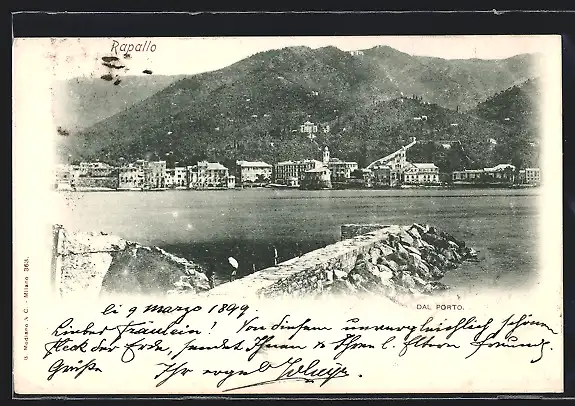 Rapallo
DAL PORTO.
G. Modiano & C. - Milano 363.
li 9 marzo 1899
Lieber Fräulein! Von diesem unvergleichlich schönen
Fleck der Erde, sendet Ihnen & Ihren l. Eltern freundl.
Grüße
Ihr ergeb.